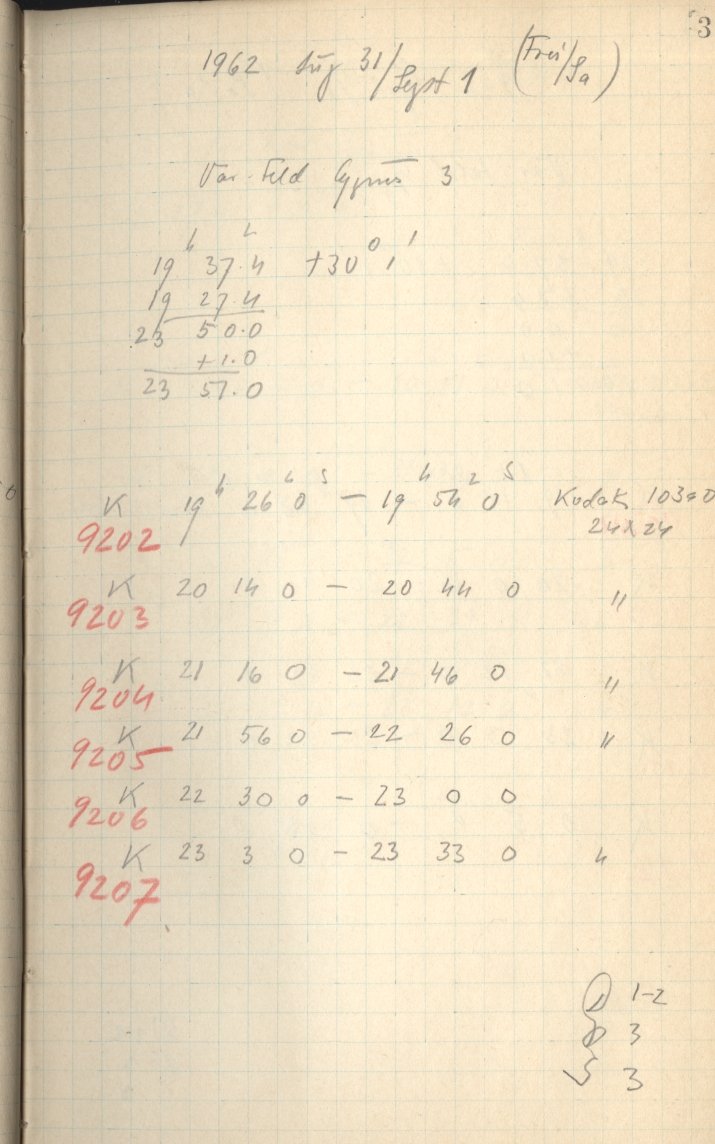 3
1962 Aug 31/Sept 1 (Frei/Sa)
Var. Feld Cygnus 3
19h 37.4 +30° 1'
19 27.4
23 50.0
+1.0
23 51.0
K 19h 26m 0s — 19h 54m 0s Kodak 103a0
9202 24x24
K 20 14 0 — 20 44 0 "
9203
K 21 16 0 — 21 46 0 "
9204
K 21 56 0 — 22 26 0 "
9205
K 22 30 0 — 23 0 0
9206
K 23 3 0 — 23 33 0 "
9207
1-2
3
S 3